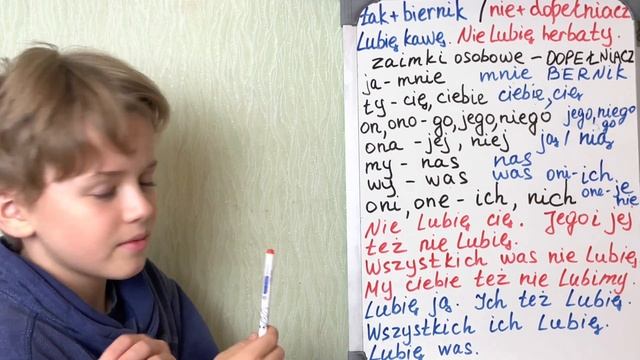 tak + biernik / nie + dopełniacz
Lubię kawę. Nie lubię herbaty.
zaimki osobowe - DOPEŁNIACZ
ja - mnie mnie BERNIK
ty - cię, ciebie ciebie, cię
on, ono - go, jego, niego jego, niego
go
ona - jej, niej ją / nią
my - nas nas
wy - was was oni - ich
oni, one - ich, nich one - je
nie
Nie lubię cię. Jego i jej
też nie lubię.
Wszystkich was nie lubię
My ciebie też nie lubimy.
Lubię ją. Ich też lubię.
Wszystkich ich lubię.
Lubię was.